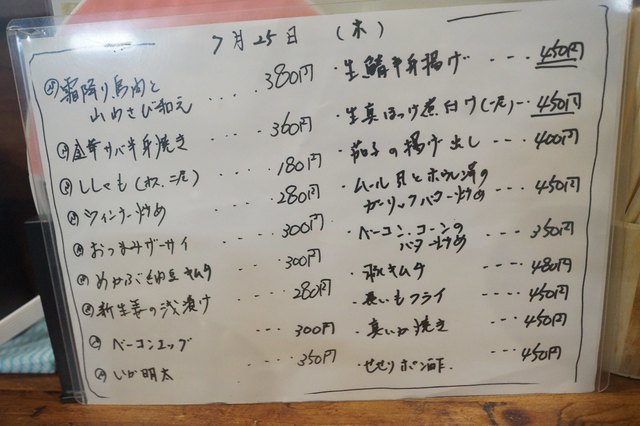 7月25日 (木)
霜降り馬肉と
山わさび和え .... 380円
金華サバ半身焼き ... 360円
ししゃも(オス 二尾) .... 180円
ウィンナー炒め .... 280円
おつまみザーサイ .... 300円
めかぶ納豆キムチ .... 300円
新生姜の浅漬け ... 280円
ベーコンエッグ ... 300円
いか明太 .... 350円
・生鯖半身揚げ ... 450円
・生真ほっけ煮付け(一尾) ... 450円
・茄子の揚げ出し ... 400円
・ムール貝とホウレン草の
ガーリックバター炒め .... 450円
・ベーコン・コーンの
バター炒め ... 350円
・豚キムチ .... 480円
・長いもフライ .... 450円
・真いか焼き .... 450円
・せせりポン酢. .... 450円